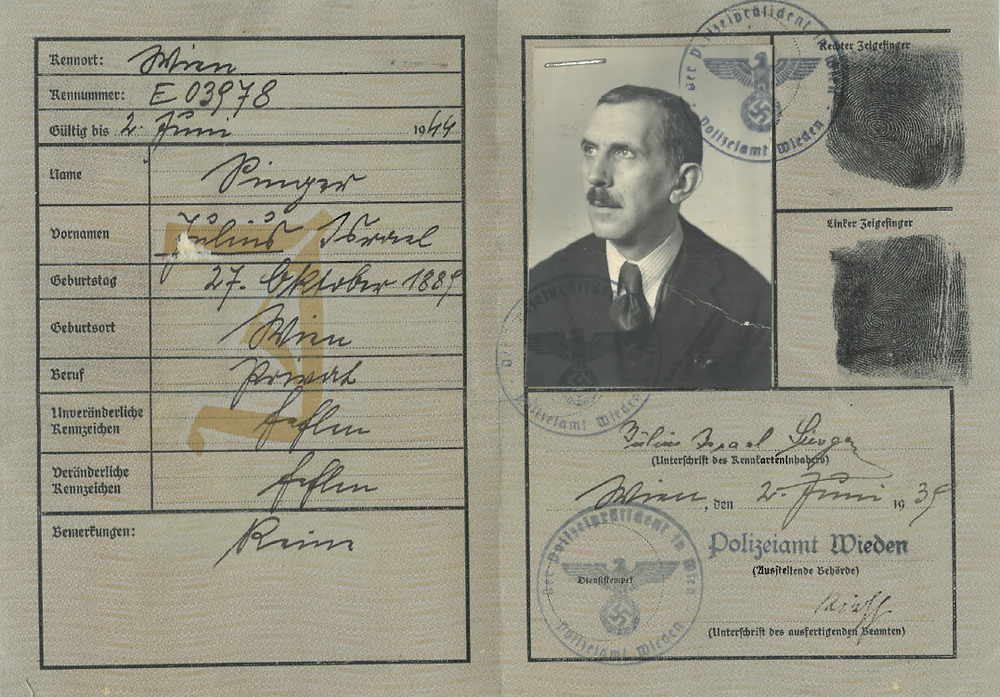 Kennort: Wien
Kennummer: E 03978
Gültig bis 2. Juni 1944
Name Singer
Vornamen Julius Israel
Geburtstag 27. Oktober 1889
Geburtsort Wien
Beruf Privat
Unveränderliche Kennzeichen fehlen
Veränderliche Kennzeichen fehlen
Bemerkungen: Keine
J
Der Polizeipräsident in Wien
Polizeiamt Wieden
Rechter Zeigefinger
Linker Zeigefinger
Der Polizeipräsident in Wien
Polizeiamt Wieden
Julius Israel Singer
(Unterschrift des Kennkarteninhabers)
Wien, den 2. Juni 1939
Der Polizeipräsident in Wien
Dienststempel
Polizeiamt Wieden
Polizeiamt Wieden
(Ausstellende Behörde)
(Unterschrift des ausfertigenden Beamten)